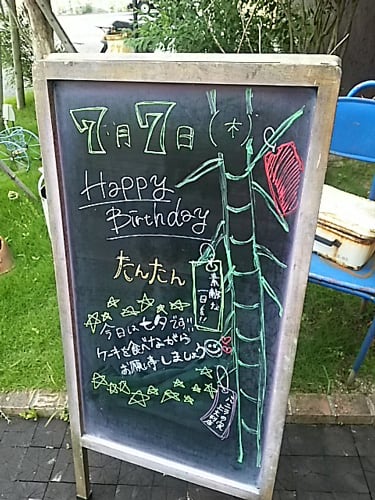 7月7日(木)
Happy
Birthday
たんたん
素敵な
一日を!!
今日は七夕です!!
ケーキを食べながら
お願い事しましょう